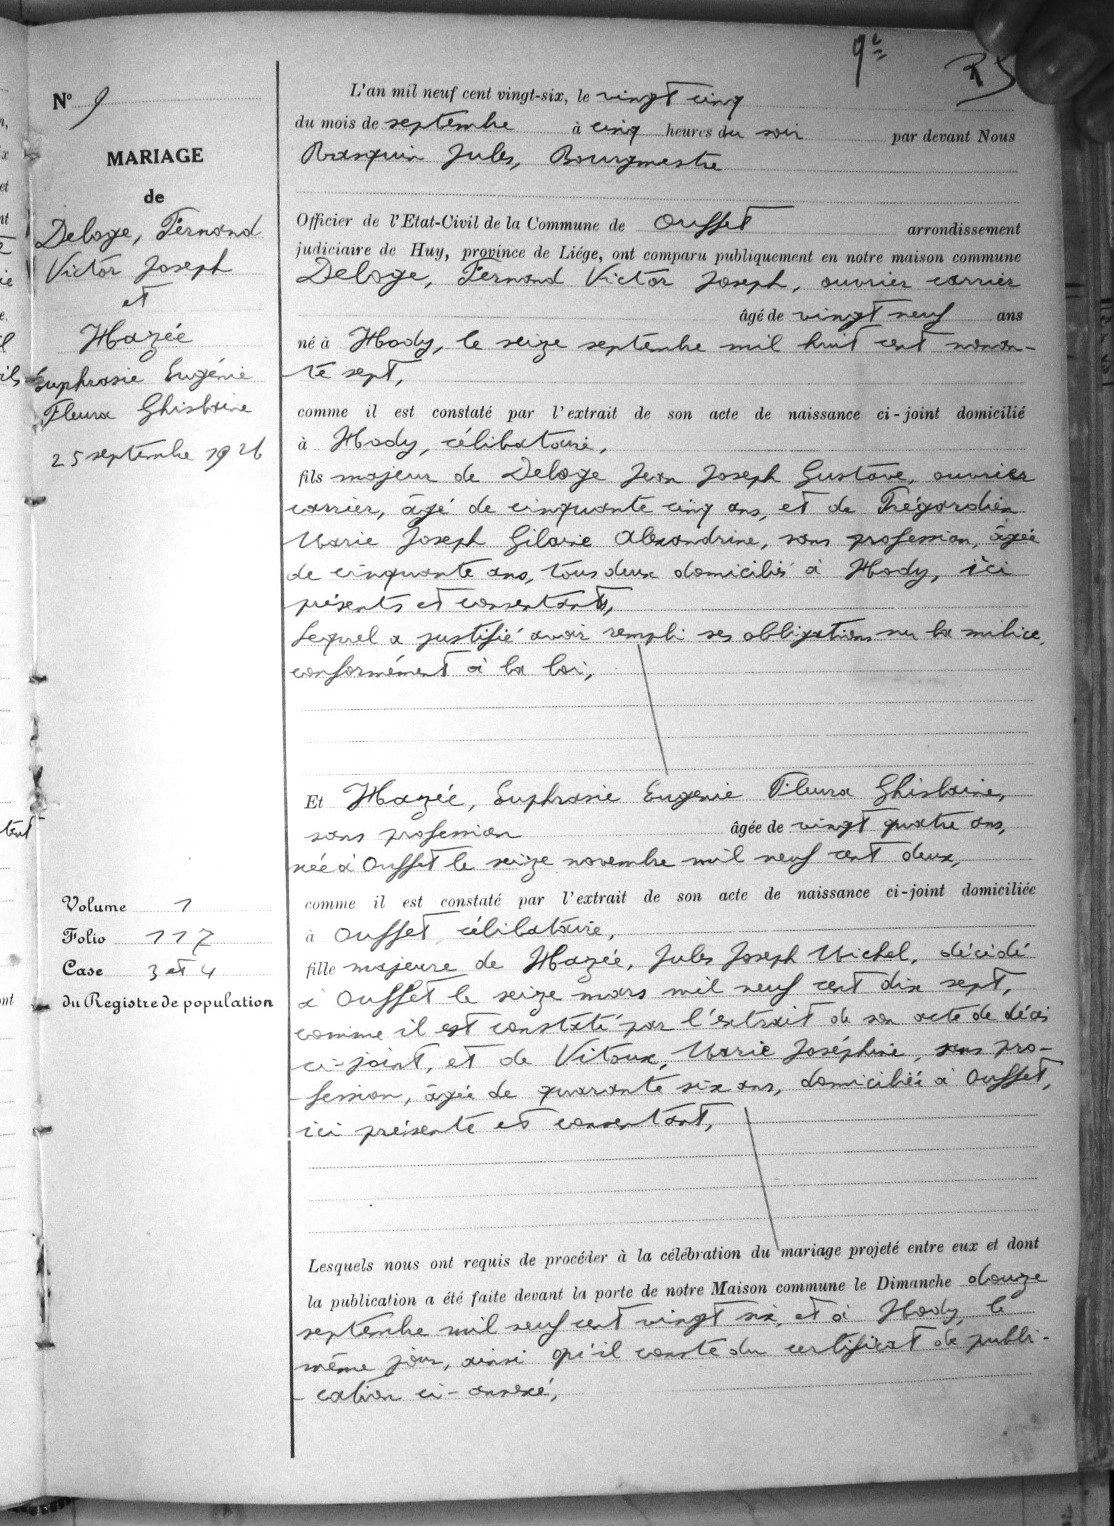 9e
R5
N° 9
MARIAGE
de
Deloge, Fernand
Victor Joseph
et
Hazée
Euphrasie Eugénie
Fleura Ghislaine
25 septembre 1926
Volume 1
Folio 117
Case 3 et 4
du Registre de population
L'an mil neuf cent vingt-six, le vingt cinq
du mois de septembre à cinq heures du soir par devant Nous
Rasquin Jules, Bourgmestre
Officier de l'Etat-Civil de la Commune de Ouffet arrondissement
judiciaire de Huy, province de Liége, ont comparu publiquement en notre maison commune
Deloge, Fernand Victor Joseph, ouvrier carrier
âgé de vingt neuf ans
né à Hody, le seize septembre mil huit cent nonan-
te sept,
comme il est constaté par l'extrait de son acte de naissance ci-joint domicilié
à Hody, célibataire,
fils majeur de Deloge Jean Joseph Gustave, ouvrier
carrier, âgé de cinquante cinq ans, et de Trégardien
Marie Joseph Hilarie Alexandrine, sans profession, âgée
de cinquante ans, tous deux domiciliés à Hody, ici
présents et consentants,
Lequel a justifié avoir rempli ses obligations sur la milice,
conformément à la loi,
Et Hazée, Euphrasie Eugénie Fleura Ghislaine,
sans profession âgée de vingt quatre ans,
née à Ouffet le seize novembre mil neuf cent deux,
comme il est constaté par l'extrait de son acte de naissance ci-joint domiciliée
à Ouffet, célibataire,
fille majeure de Hazée, Jules Joseph Michel, décédé
à Ouffet le seize mars mil neuf cent dix sept,
comme il est constaté par l'extrait de son acte de décès
ci-joint, et de Vitoux, Marie Joséphine, sans pro-
fession, âgée de quarante six ans, domiciliée à Ouffet,
ici présente et consentant,
Lesquels nous ont requis de procéder à la célébration du mariage projeté entre eux et dont
la publication a été faite devant la porte de notre Maison commune le Dimanche douze
septembre mil neuf cent vingt six, et à Hody, le
même jour, ainsi qu'il conste du certificat de publi-
cation ci-annexé,